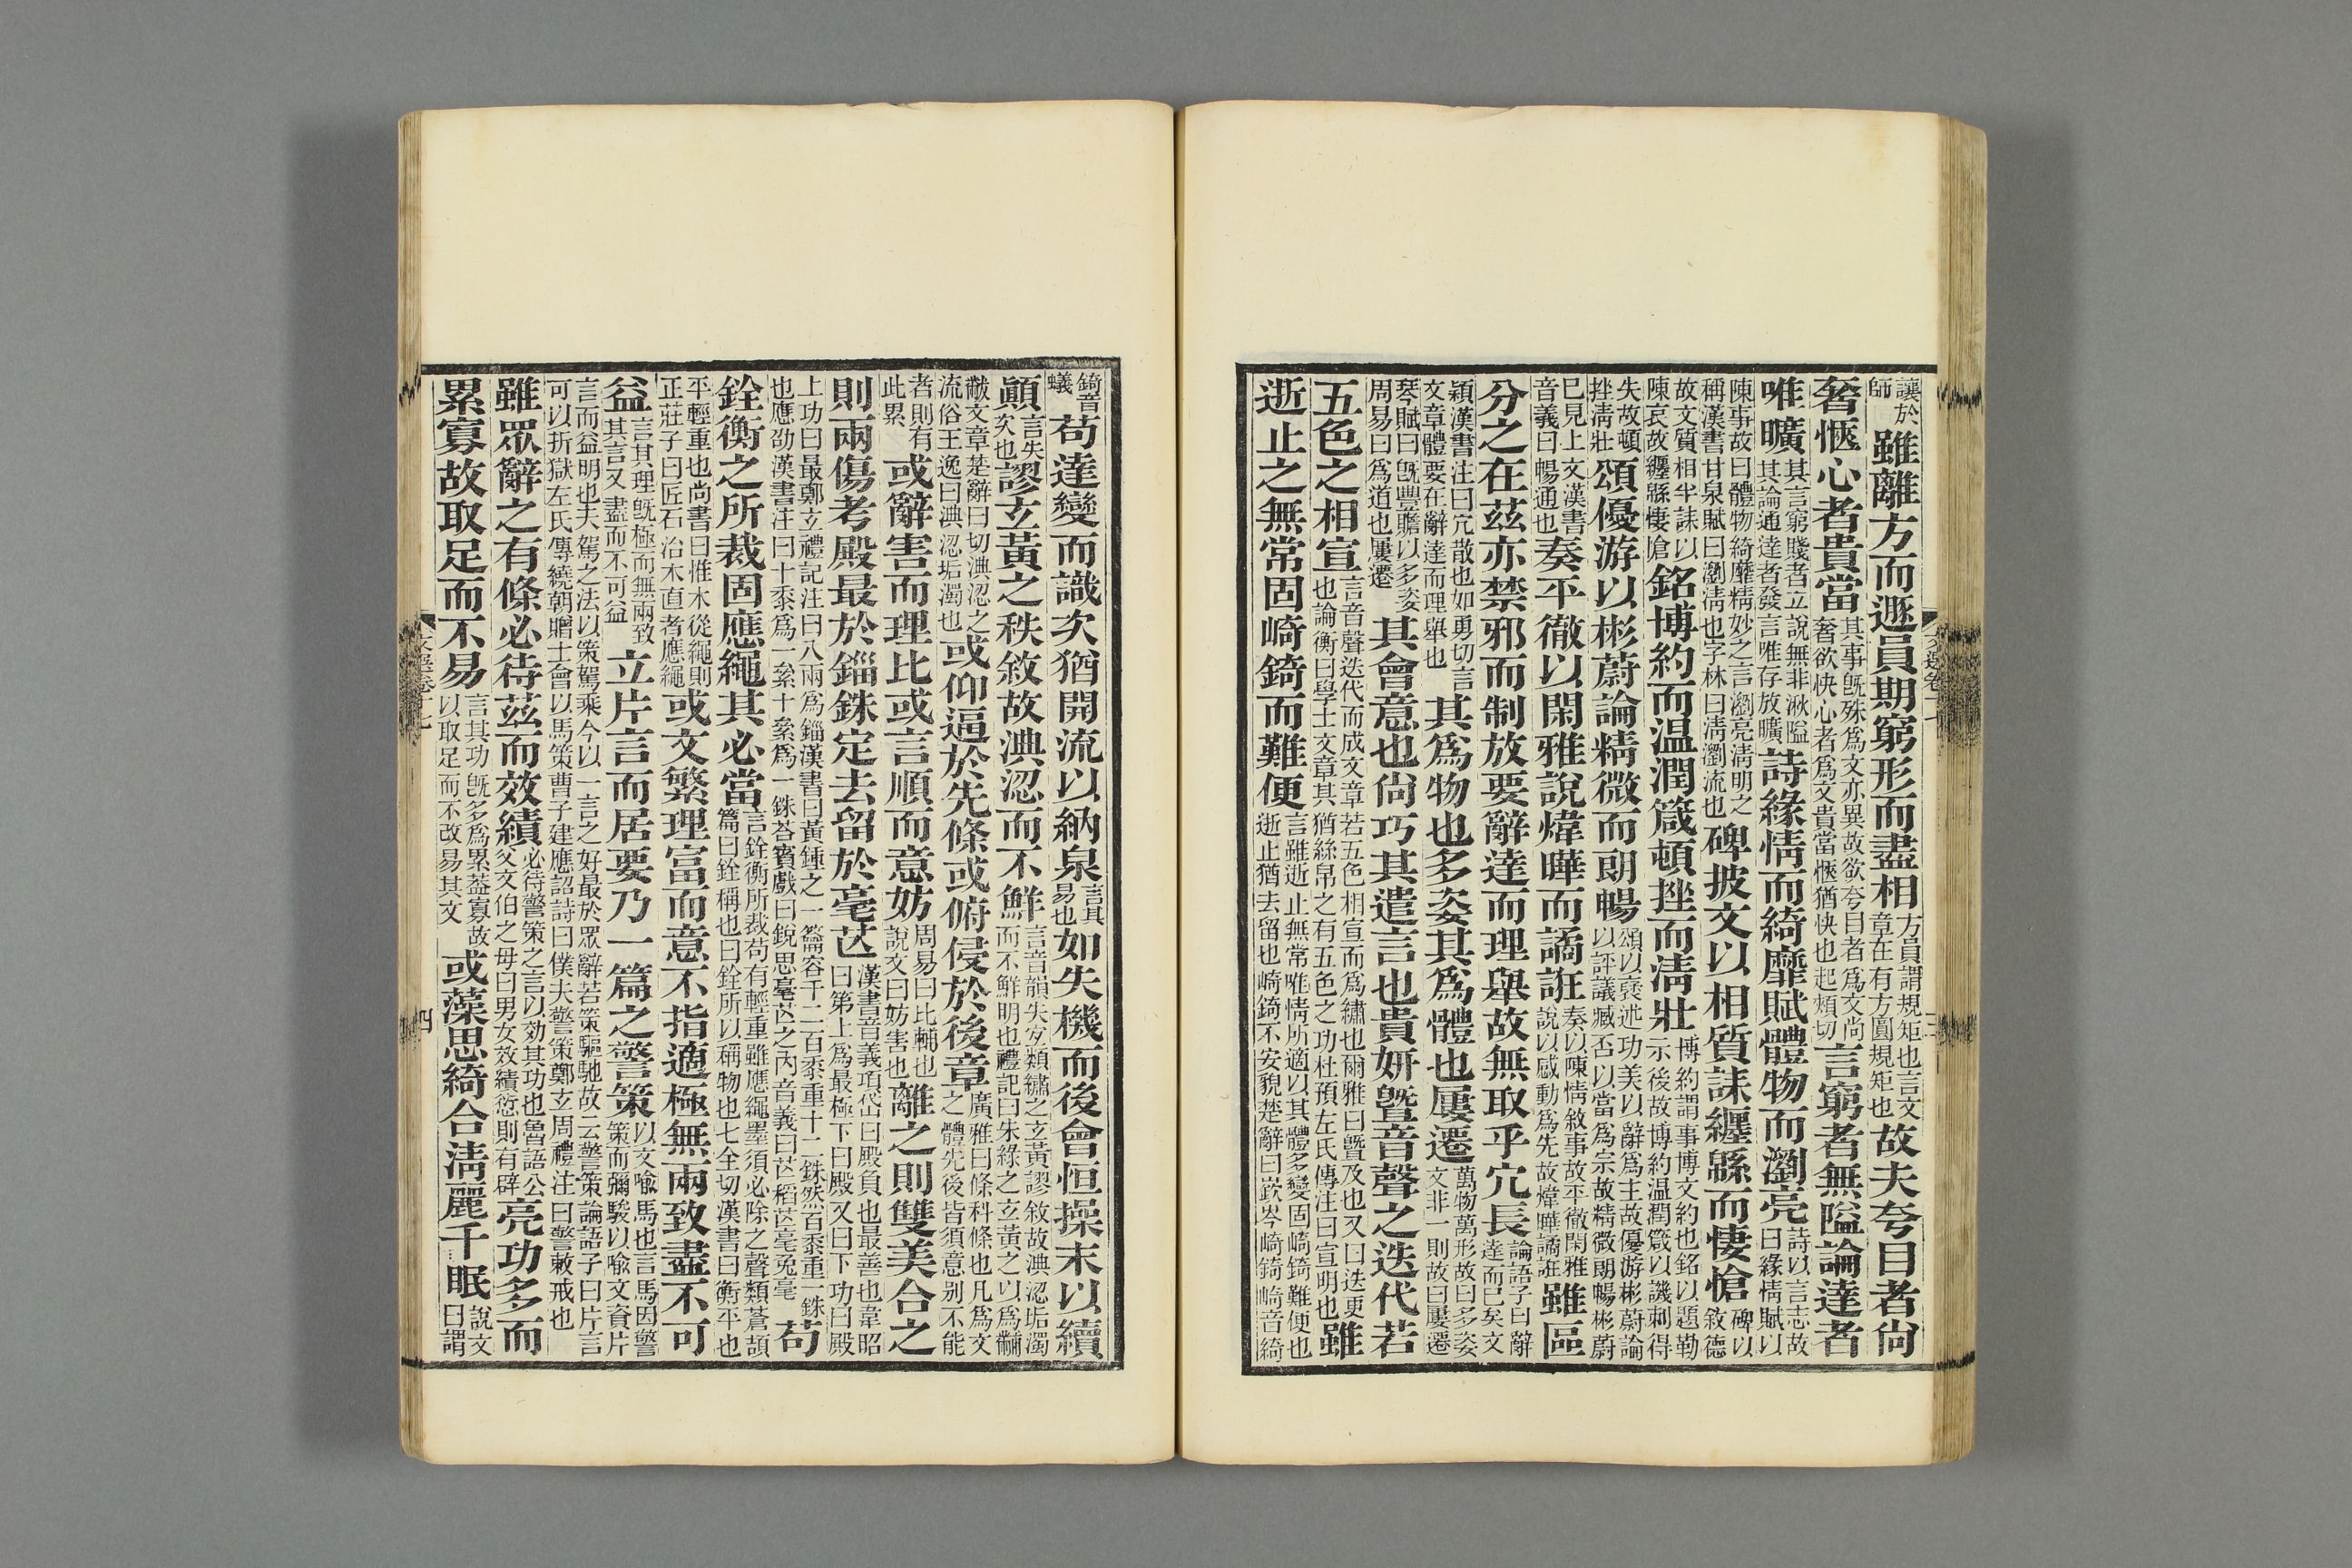 讓於師雖離方而遯員期窮形而盡相方員謂規矩也言文章在有方圓規矩也故夫夸目者尚
奢愜心者貴當其事旣殊爲文亦異故欲夸目者爲文尚奢欲快心者爲文貴當愜猶快也起頰切言窮者無隘論達者
唯曠其言窮賤者立說無非湫隘其論通達者發言唯存放曠詩緣情而綺靡賦體物而瀏亮詩以言志故曰緣情賦以
陳事故曰體物綺靡精妙之言瀏亮淸明之稱漢書甘泉賦曰瀏淸也字林曰淸瀏流也碑披文以相質誄纏緜而悽愴碑以敘德
故文質相半誄以陳哀故纏緜悽愴銘博約而温潤箴頓挫而淸壯博約謂事博文約也銘以題勒示後故博約温潤箴以譏刺得
失故頓挫淸壯頌優游以彬蔚論精微而朗暢頌以襃述功美以辭爲主故優游彬蔚論以評議臧否以當爲宗故精微朗暢彬蔚
已見上文漢書音義曰暢通也奏平徹以閑雅說煒曄而譎誑奏以陳情敘事故平徹閑雅說以感動爲先故煒曄譎誑雖區
分之在茲亦禁邪而制放要辭達而理舉故無取乎宂長論語子曰辭達而已矣文
穎漢書注曰宂散也如勇切言文章體要在辭達而理舉也其爲物也多姿其爲體也屢遷萬物萬形故曰多姿文非一則故曰屢遷
琴賦曰旣豐贍以多姿周易曰爲道也屢遷其會意也尚巧其遣言也貴妍曁音聲之迭代若
五色之相宣言音聲迭代而成文章若五色相宣而爲繡也爾雅曰曁及也又曰迭更也論衡曰學士文章其猶絲帛之有五色之功杜預左氏傳注曰宣明也雖
逝止之無常固崎錡而難便言雖逝止無常唯情所適以其體多變固崎錡難便也逝止猶去留也崎錡不安貌楚辭曰嶔岑崎錡崎音綺
錡音蟻苟達變而識次猶開流以納泉言其易也如失機而後會恒操末以續
顚言失次也謬玄黃之秩敘故淟涊而不鮮言音韻失宜類繡之玄黃謬敘故淟涊垢濁而不鮮明也禮記曰朱綠之玄黃之以爲黼
黻文章楚辭曰切淟涊之流俗王逸曰淟涊垢濁也或仰逼於先條或俯侵於後章廣雅曰條科條也凡爲文之體先後皆須意别不能
者則有此累或辭害而理比或言順而意妨周易曰比輔也說文曰妨害也離之則雙美合之
則兩傷考殿最於錙銖定去留於毫芒漢書音義項岱曰殿負也最善也韋昭曰第上爲最極下曰殿又曰下功曰殿
上功曰最鄭玄禮記注曰八兩爲錙漢書曰黃鍾之一籥容千二百黍重十二銖然百黍重一銖也應劭漢書注曰十黍爲一絫十絫爲一銖荅賓戲曰銳思毫芒之内音義曰芒稻芒毫兎毫苟
銓衡之所裁固應繩其必當言銓衡所裁苟有輕重雖應繩墨須必除之聲類蒼頡篇曰銓稱也曰銓所以稱物也七全切漢書曰衡平也
平輕重也尚書曰惟木從繩則正莊子曰匠石治木直者應繩或文繁理富而意不指適極無兩致盡不可
益言其理旣極而無兩致其言又盡而不可益立片言而居要乃一篇之警策以文喩馬也言馬因警策而彌駿以喩文資片
言而益明也夫駕之法以策駕乘今以一言之好最於眾辭若策驅馳故云警策論語子曰片言可以折獄左氏傳繞朝贈士會以馬策曹子建應詔詩曰僕夫警策鄭玄周禮注曰警敕戒也
雖眾辭之有條必待茲而效績必待警策之言以効其功也魯語公父文伯之母曰男女效績愆則有辟亮功多而
累寡故取足而不易言其功旣多爲累葢寡故以取足而不改易其文或藻思綺合淸麗千眠說文曰謂
四